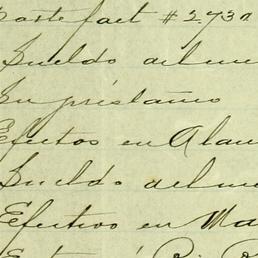 Costo fact # 2732
Sueldo del me
Su préstamo
Efectos en Alam
Sueldo del me
Efectivo en Ma